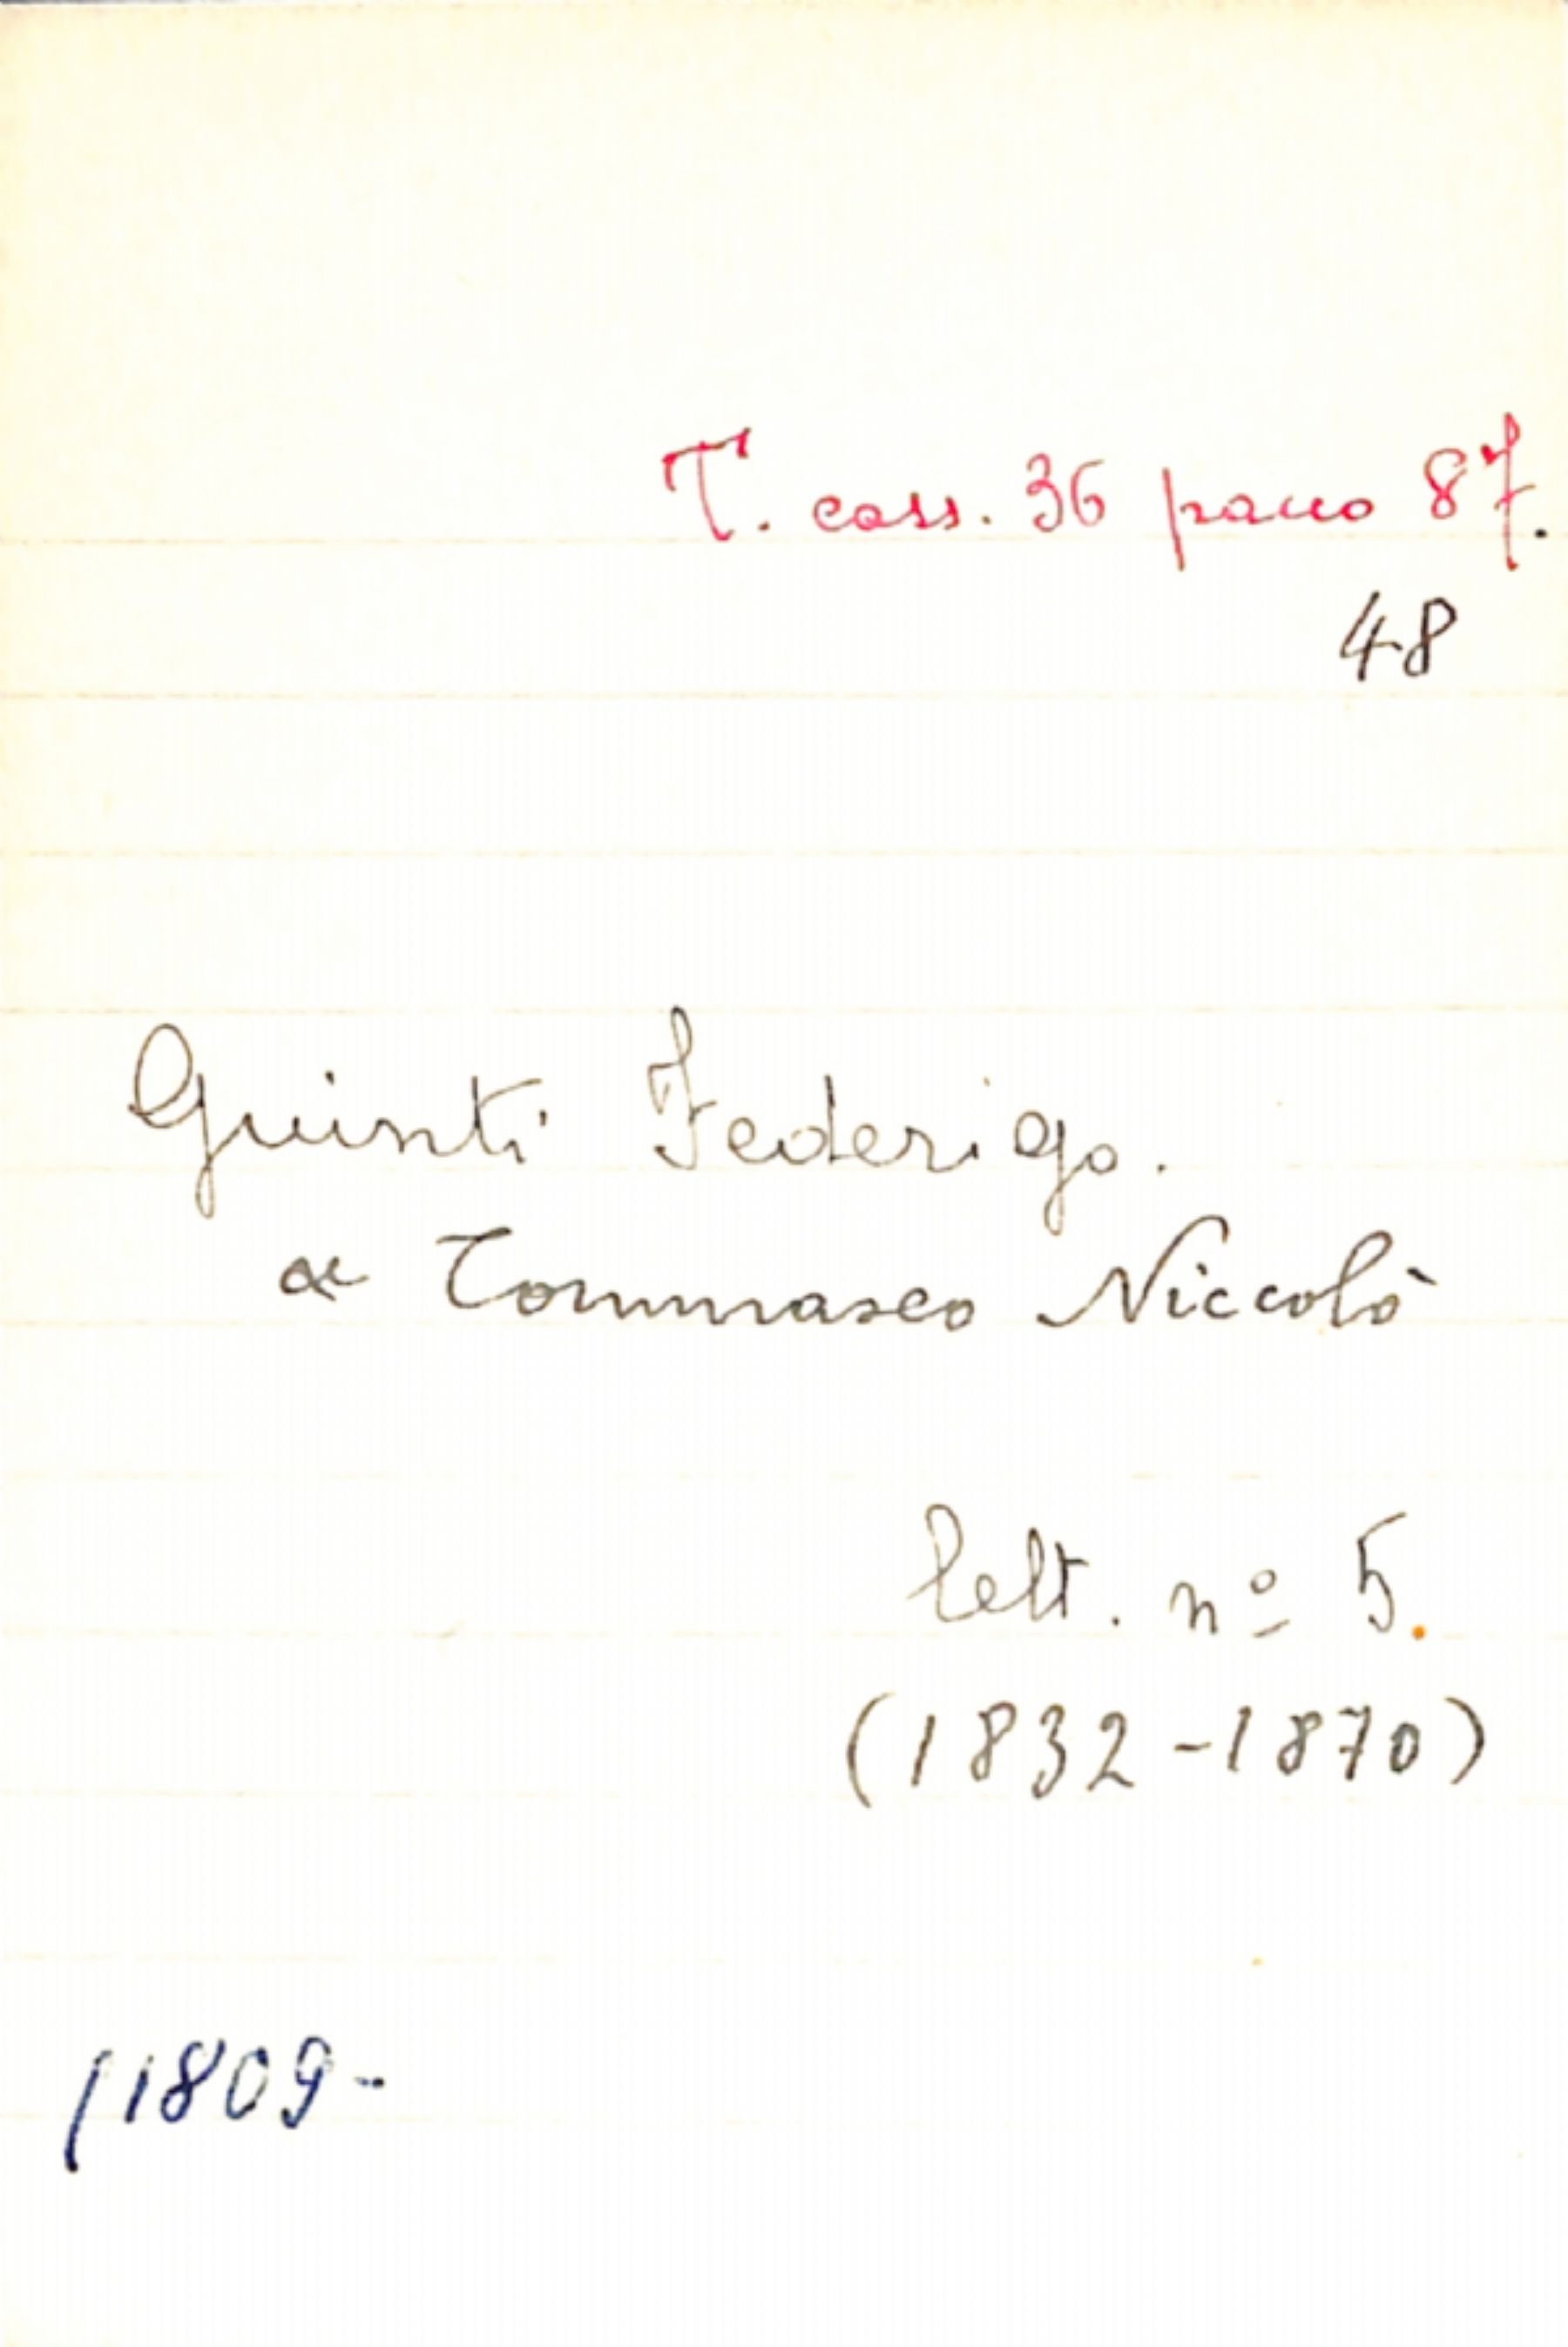 T. cass. 36 pacco 87.
48
Guinti Federigo.
a Tommaseo Niccolò
lett. nº 5.
(1832-1870)
11809-